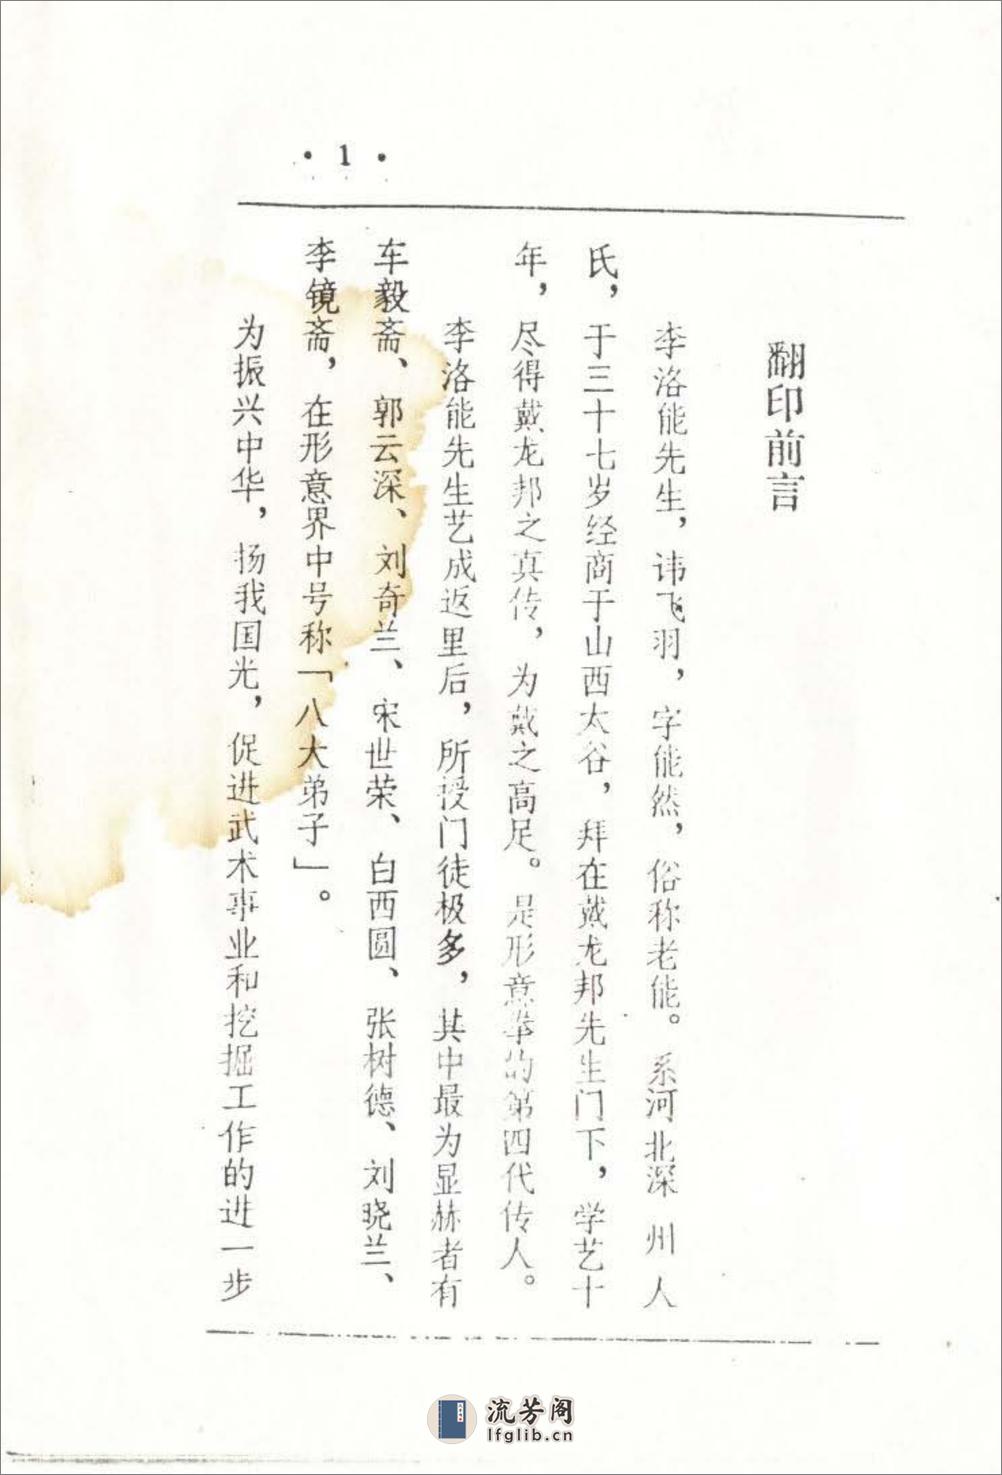 ·1·
翻印前言
李洛能先生，讳飞羽，字能然，俗称老能。系河北深州人
氏，于三十七岁经商于山西太谷，拜在戴龙邦先生门下，学艺十
年，尽得戴龙邦之真传，为戴之高足。是形意拳的第四代传人。
李洛能先生艺成返里后，所授门徒极多，其中最为显赫者有
车毅斋、郭云深、刘奇兰、宋世荣、白西圆、张树德、刘晓兰、
李镜斋，在形意界中号称「八大弟子」。
为振兴中华，扬我国光，促进武术事业和挖掘工作的进一步
流芳阁
lfglib.cn